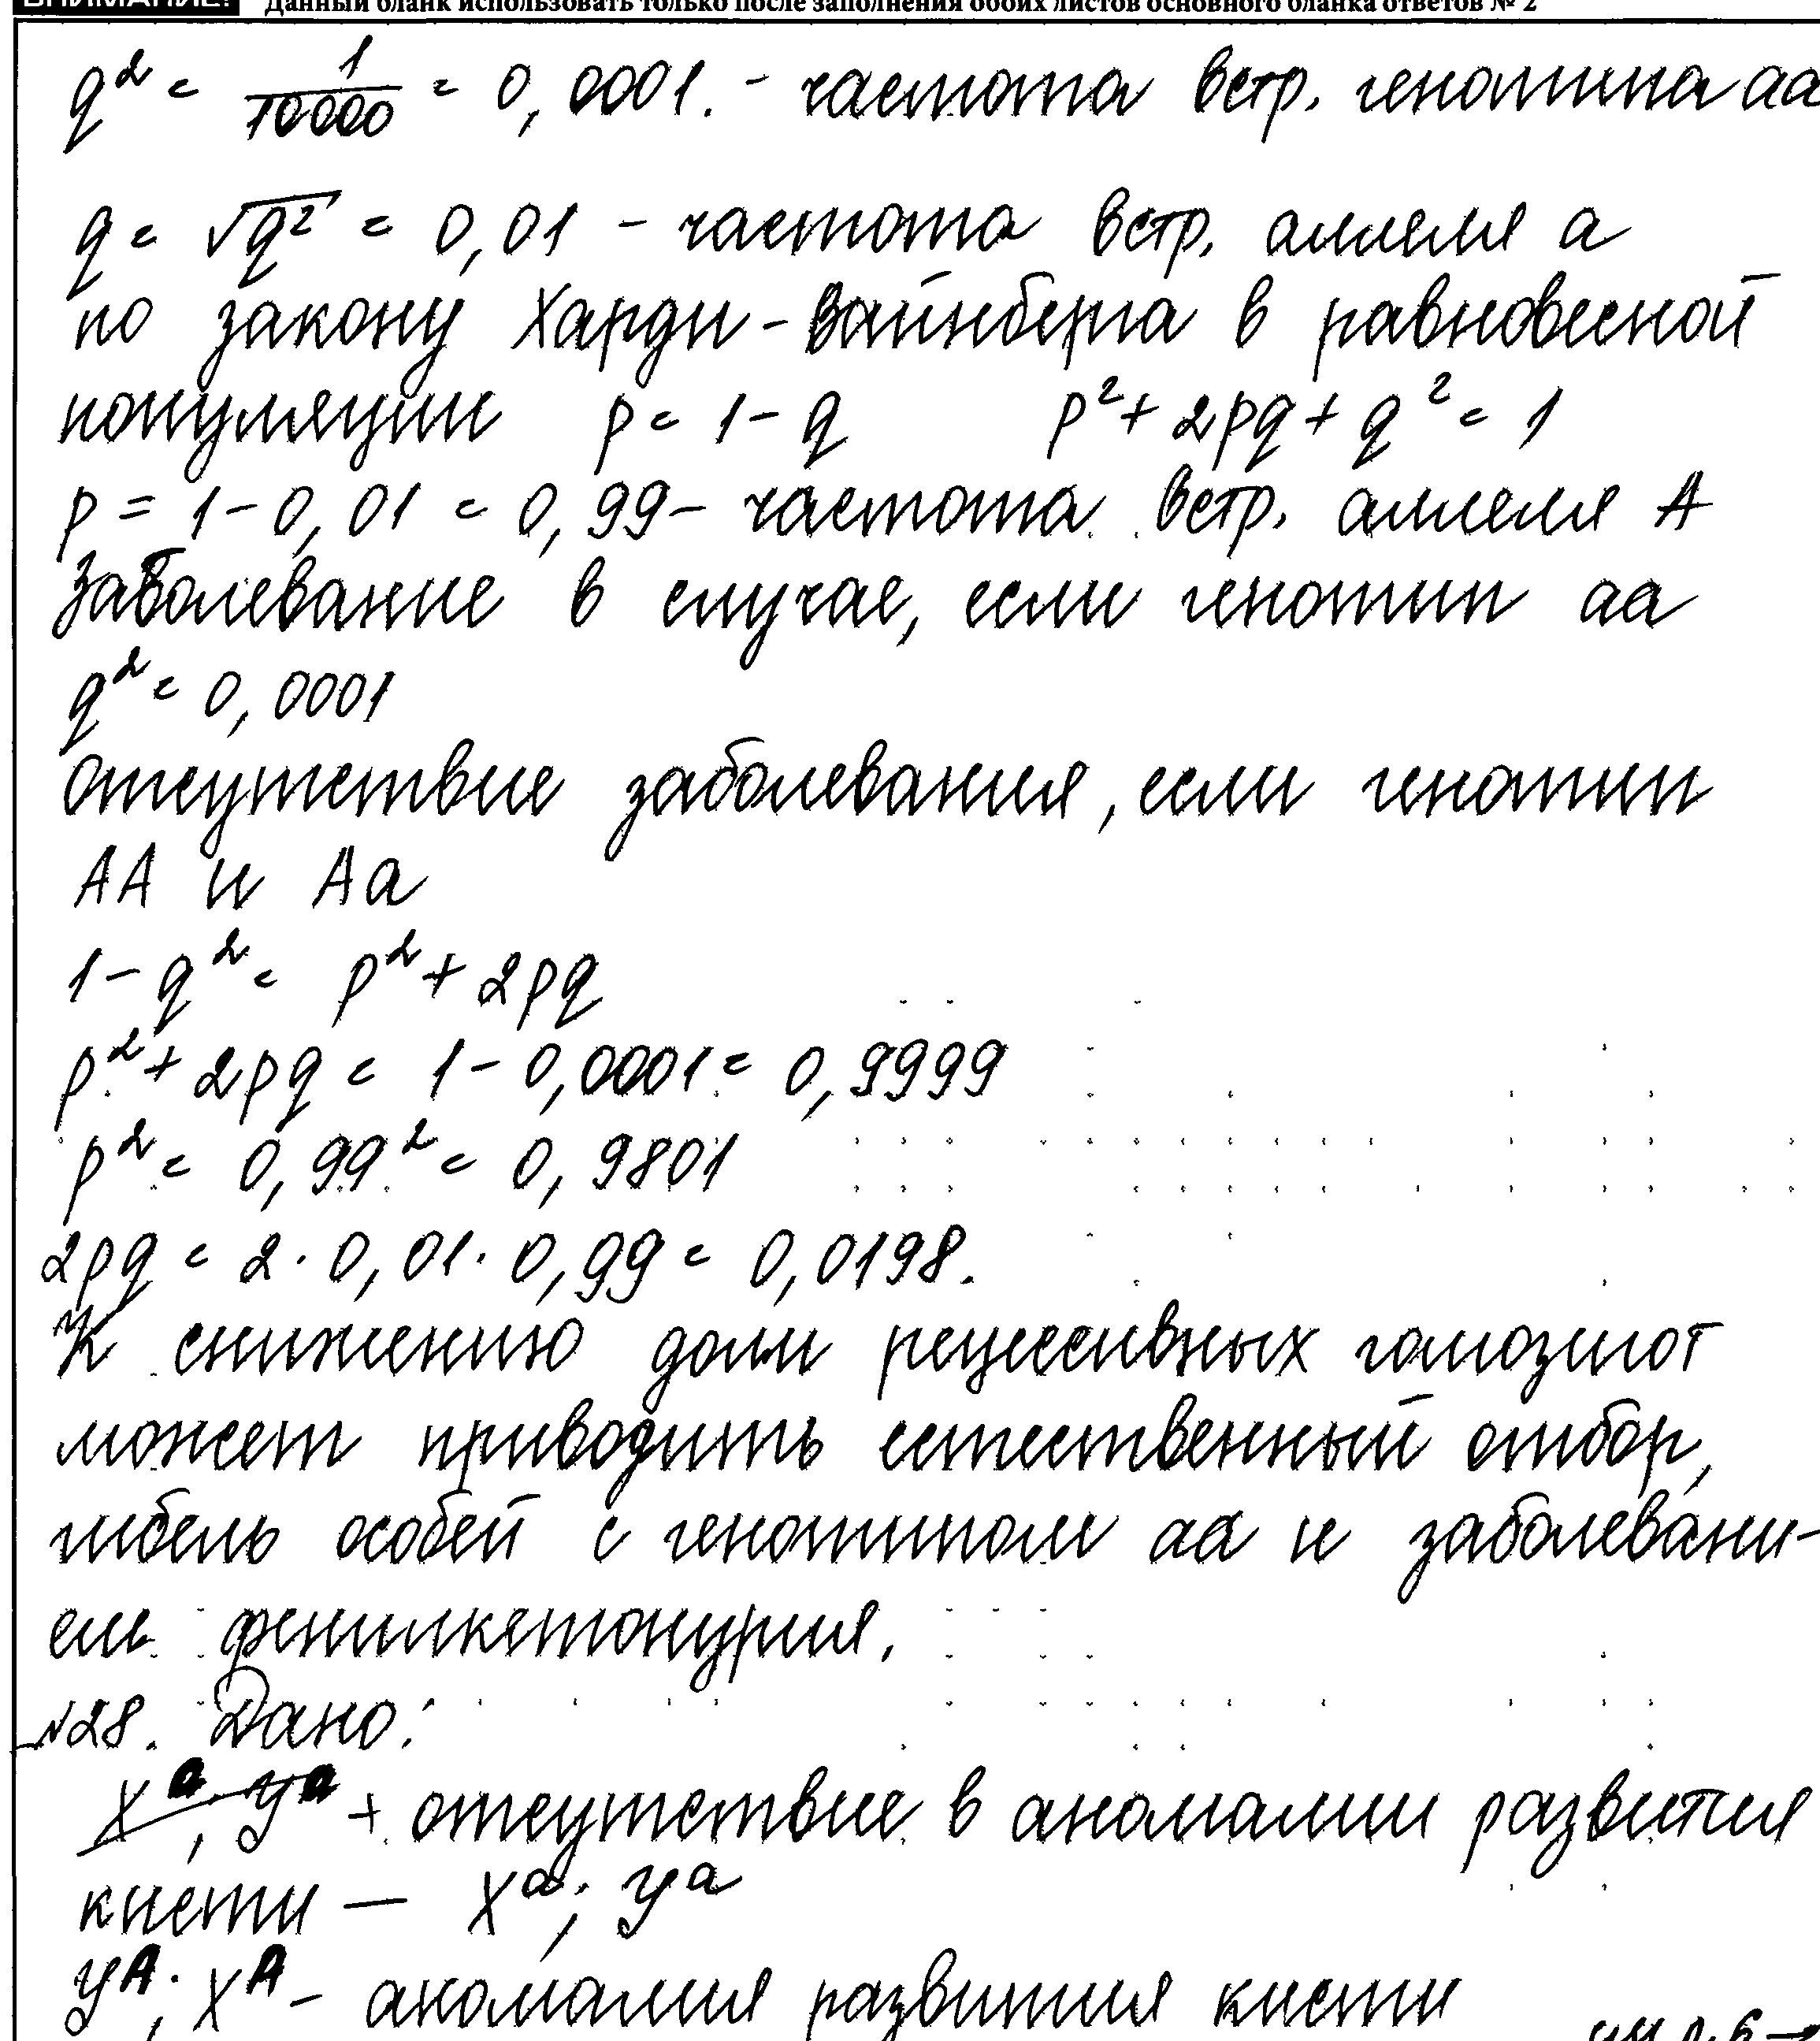 ВНИМАНИЕ! Данный бланк использовать только после заполнения обоих листов основного бланка ответов № 2
q² = 1/10000 = 0,0001. - частота встр. генотипа аа
q = √q² = 0,01 - частота встр. аллеля а
по закону Харди-Вайнберга в равновесной
популяции p = 1 - q p² + 2pq + q² = 1
p = 1 - 0,01 = 0,99 - частота встр. аллеля А
Заболевание в случае, если генотип аа
q² = 0,0001
отсутствие заболевания, если генотип
АА и Аа
1 - q² = p² + 2pq
p² + 2pq = 1 - 0,0001 = 0,9999
p² = 0,99² = 0,9801
2pq = 2 · 0,01 · 0,99 = 0,0198.
К снижению доли рецессивных гомозигот
может приводить естественный отбор,
гибель особей с генотипом аа и заболевани-
ем фенилкетонурия.
№28. Дано:
X^a; Y^a - отсутствие в аномалии развития
кисти — X^a; Y^a
Y^A; X^A - аномалия развития кисти